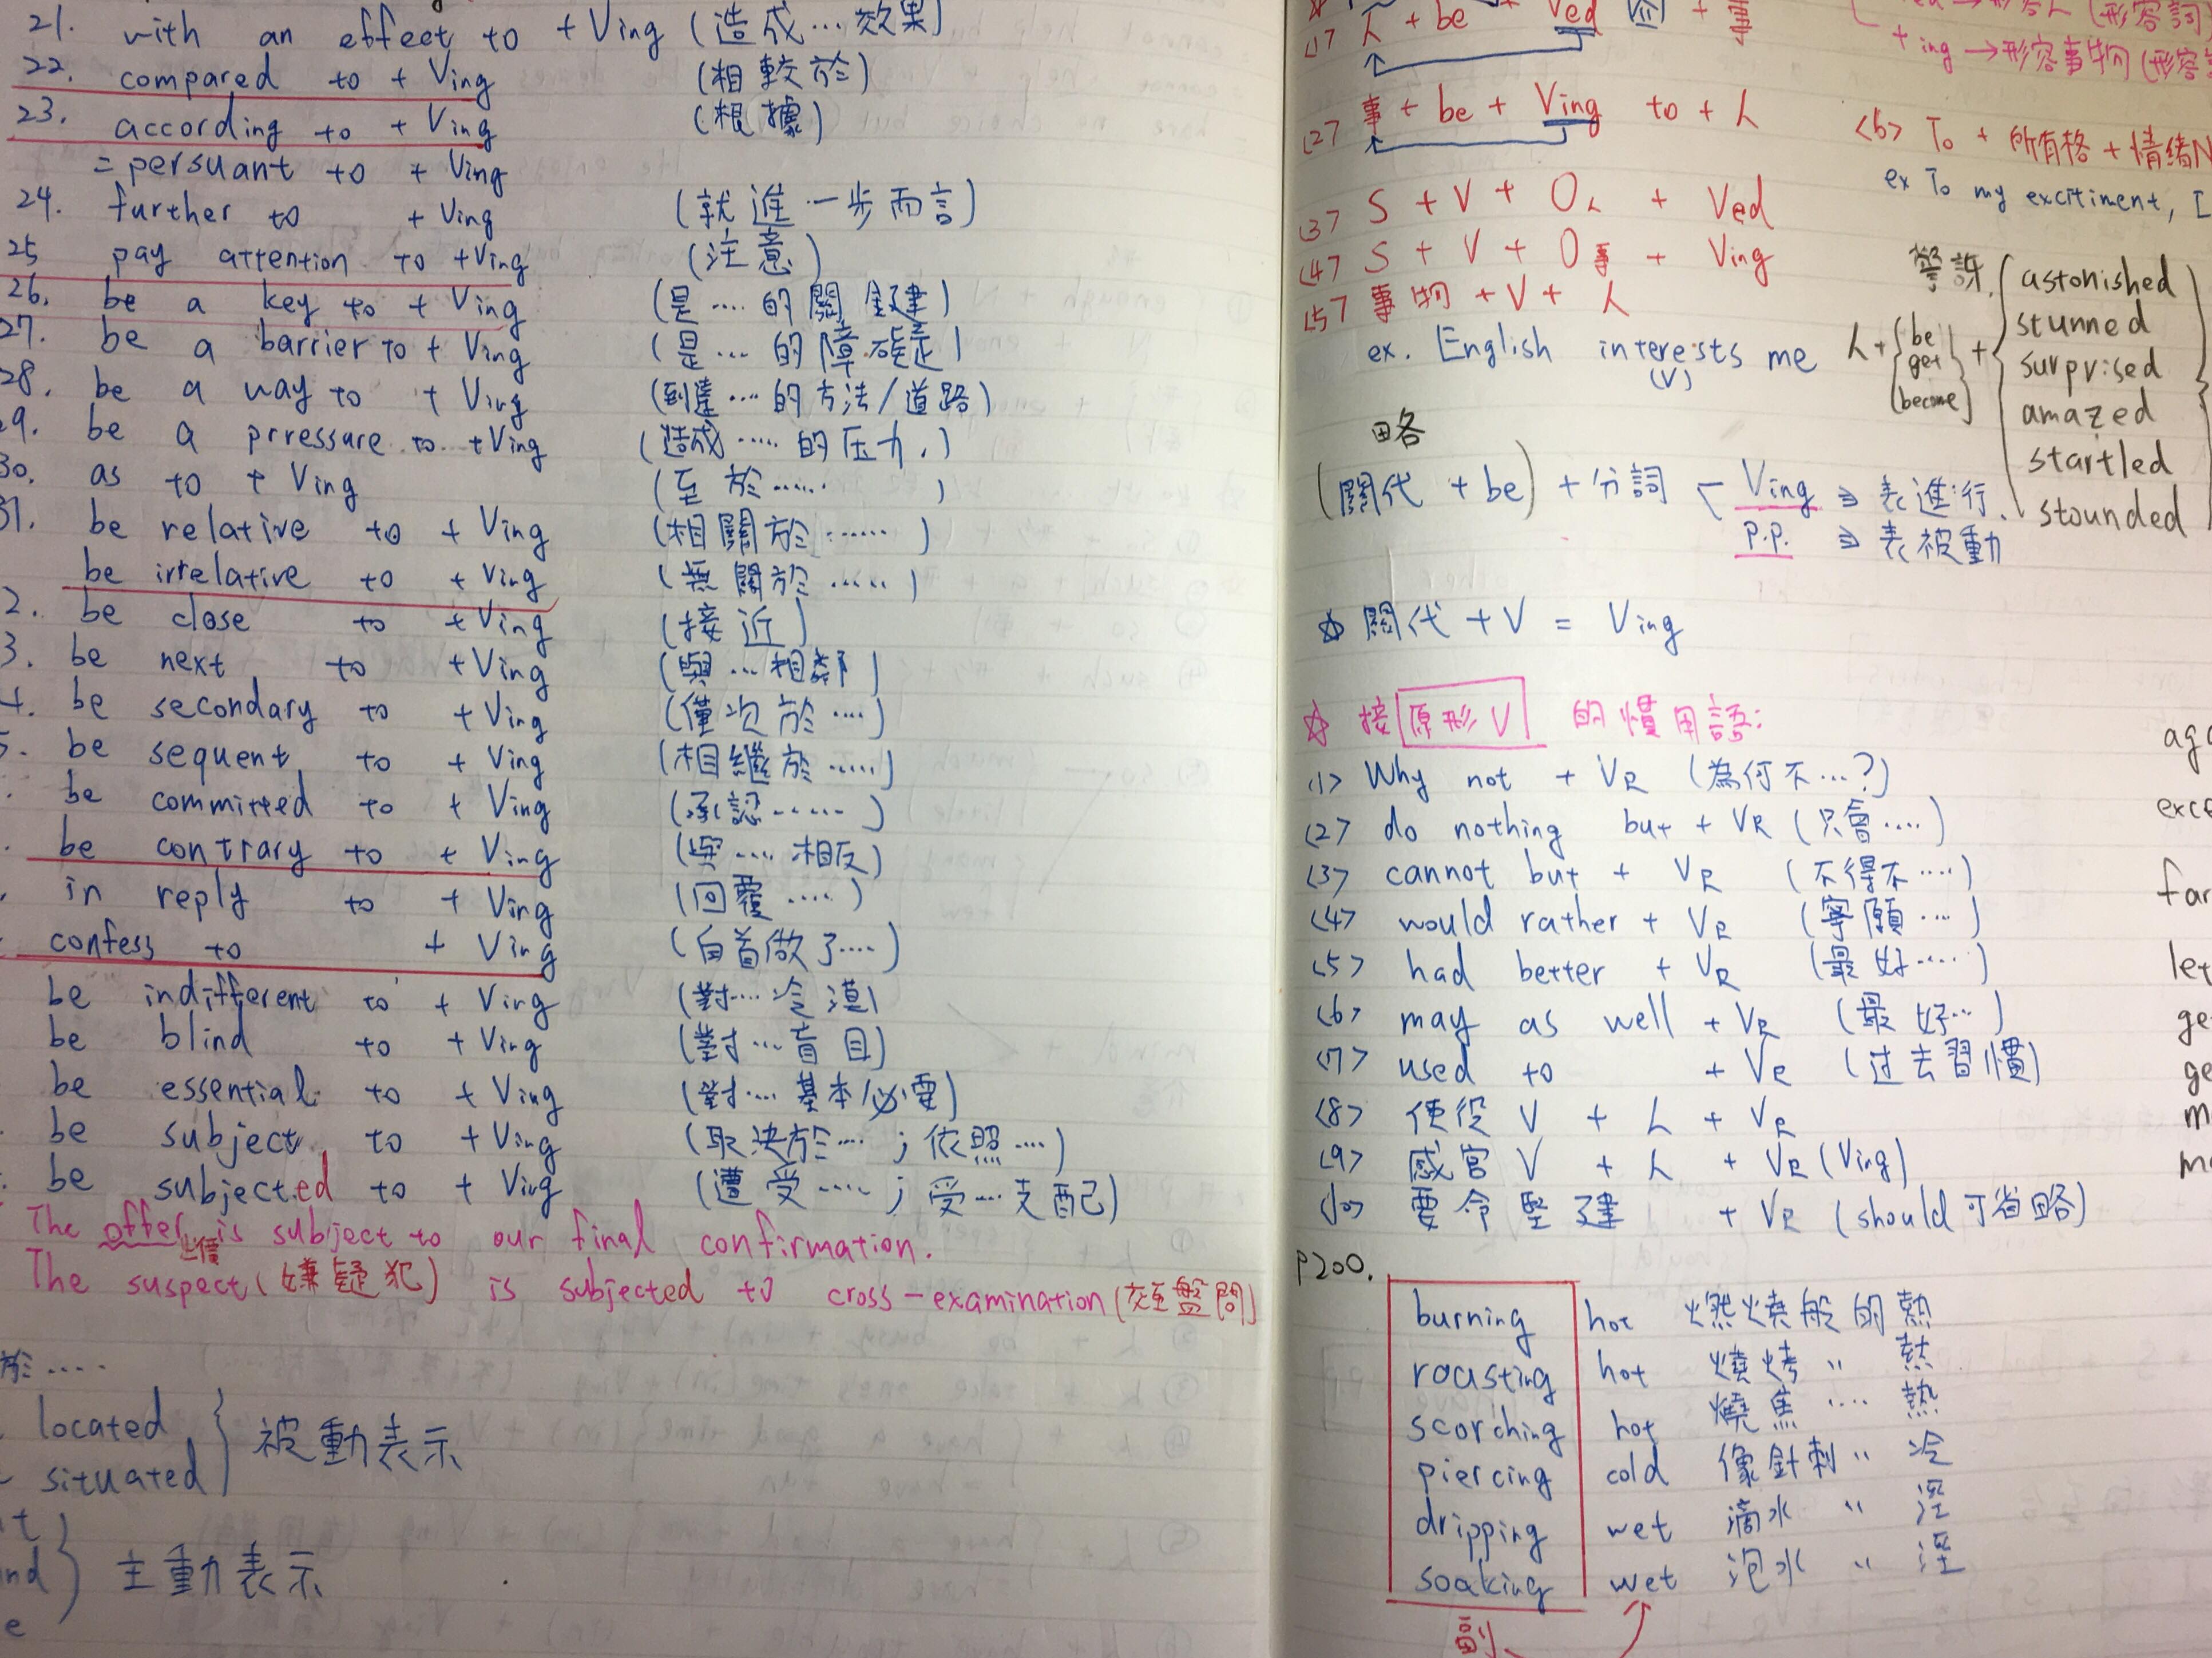 21. with an effect to + Ving (造成…效果)
22. compared to + Ving (相較於)
23. according to + Ving (根據)
= persuant to + Ving
24. further to + Ving (就進一步而言)
25 pay attention to + Ving (注意)
26. be a key to + Ving (是….的關鍵)
27. be a barrier to + Ving (是…的障礙)
28. be a way to + Ving (到達….的方法/道路)
29. be a prressure to + Ving (造成…..的压力.)
30. as to + Ving (至於……)
31. be relative to + Ving (相關於……)
be irrelative to + Ving (無關於…..)
2. be close to + Ving (接近)
3. be next to + Ving (與…相鄰)
4. be secondary to + Ving (僅次於….)
5. be sequent to + Ving (相繼於…..)
be committed to + Ving (承認……)
be contrary to + Ving (與….相反)
in reply to + Ving (回覆….)
confess to + Ving (自首做了….)
be indifferent to + Ving (對…冷漠)
be blind to + Ving (對…盲目)
be essential to + Ving (對…基本/必要)
be subject to + Ving (取決於…;依照….)
be subjected to + Ving (遭受…..;受…支配)
The offer is subject to our final confirmation.
The suspect(嫌疑犯) is subjected to cross-examination(交互盤問)
於…..
located
situated } 被動表示
} 主動表示
e
<1> 人 + be + Ved 介 + 事
<2> 事 + be + Ving to + 人
<3> S + V + O人 + Ved
<4> S + V + O事 + Ving
<5> 事物 + V + 人
ex. English interests me
(V)
+ing → 形容事物
<6> To + 所有格 + 情緒N
ex To my excitiment, I
驚訝
人 + { be get become } + { astonished
stunned
surprised
amazed
startled
stounded
略
(關代 + be) + 分詞 Ving ⇒ 表進行.
P.P. ⇒ 表被動
☆ 關代 + V = Ving
☆ 接 原形V 的慣用語:
<1> Why not + VR (為何不…?)
<2> do nothing but + VR (只會….)
<3> cannot but + VR (不得不….)
<4> would rather + VR (寧願….)
<5> had better + VR (最好…..)
<6> may as well + VR (最好…)
<7> used to + VR (过去習慣)
<8> 使役V + 人 + VR
<9> 感官V + 人 + VR (Ving)
<10> 要令堅建 + VR (should 可省略)
P200.
burning hot 燃燒般的熱
roasting hot 燒烤 〃 熱
scorching hot 燒焦 …. 熱
piercing cold 像針刺 〃 冷
dripping wet 滴水 〃 溼
soaking wet 泡水 〃 溼
副
far
let